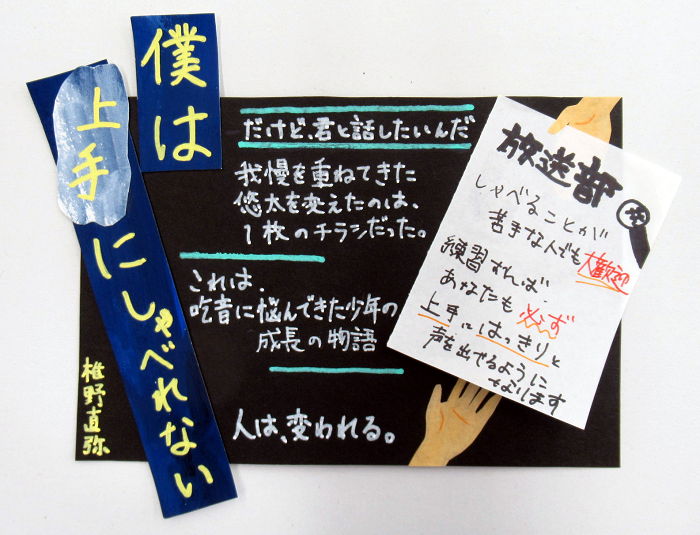 僕は
上手
にしゃべれない
椎野直弥
だけど、君と話したいんだ
我慢を重ねてきた
悠太を変えたのは、
1枚のチラシだった。
これは、
吃音に悩んできた少年の
成長の物語
人は、変われる。
放送部
しゃべることが
苦手な人でも大歓迎
練習すれば、
あなたも必ず
上手にはっきりと
声を出せるように
なります